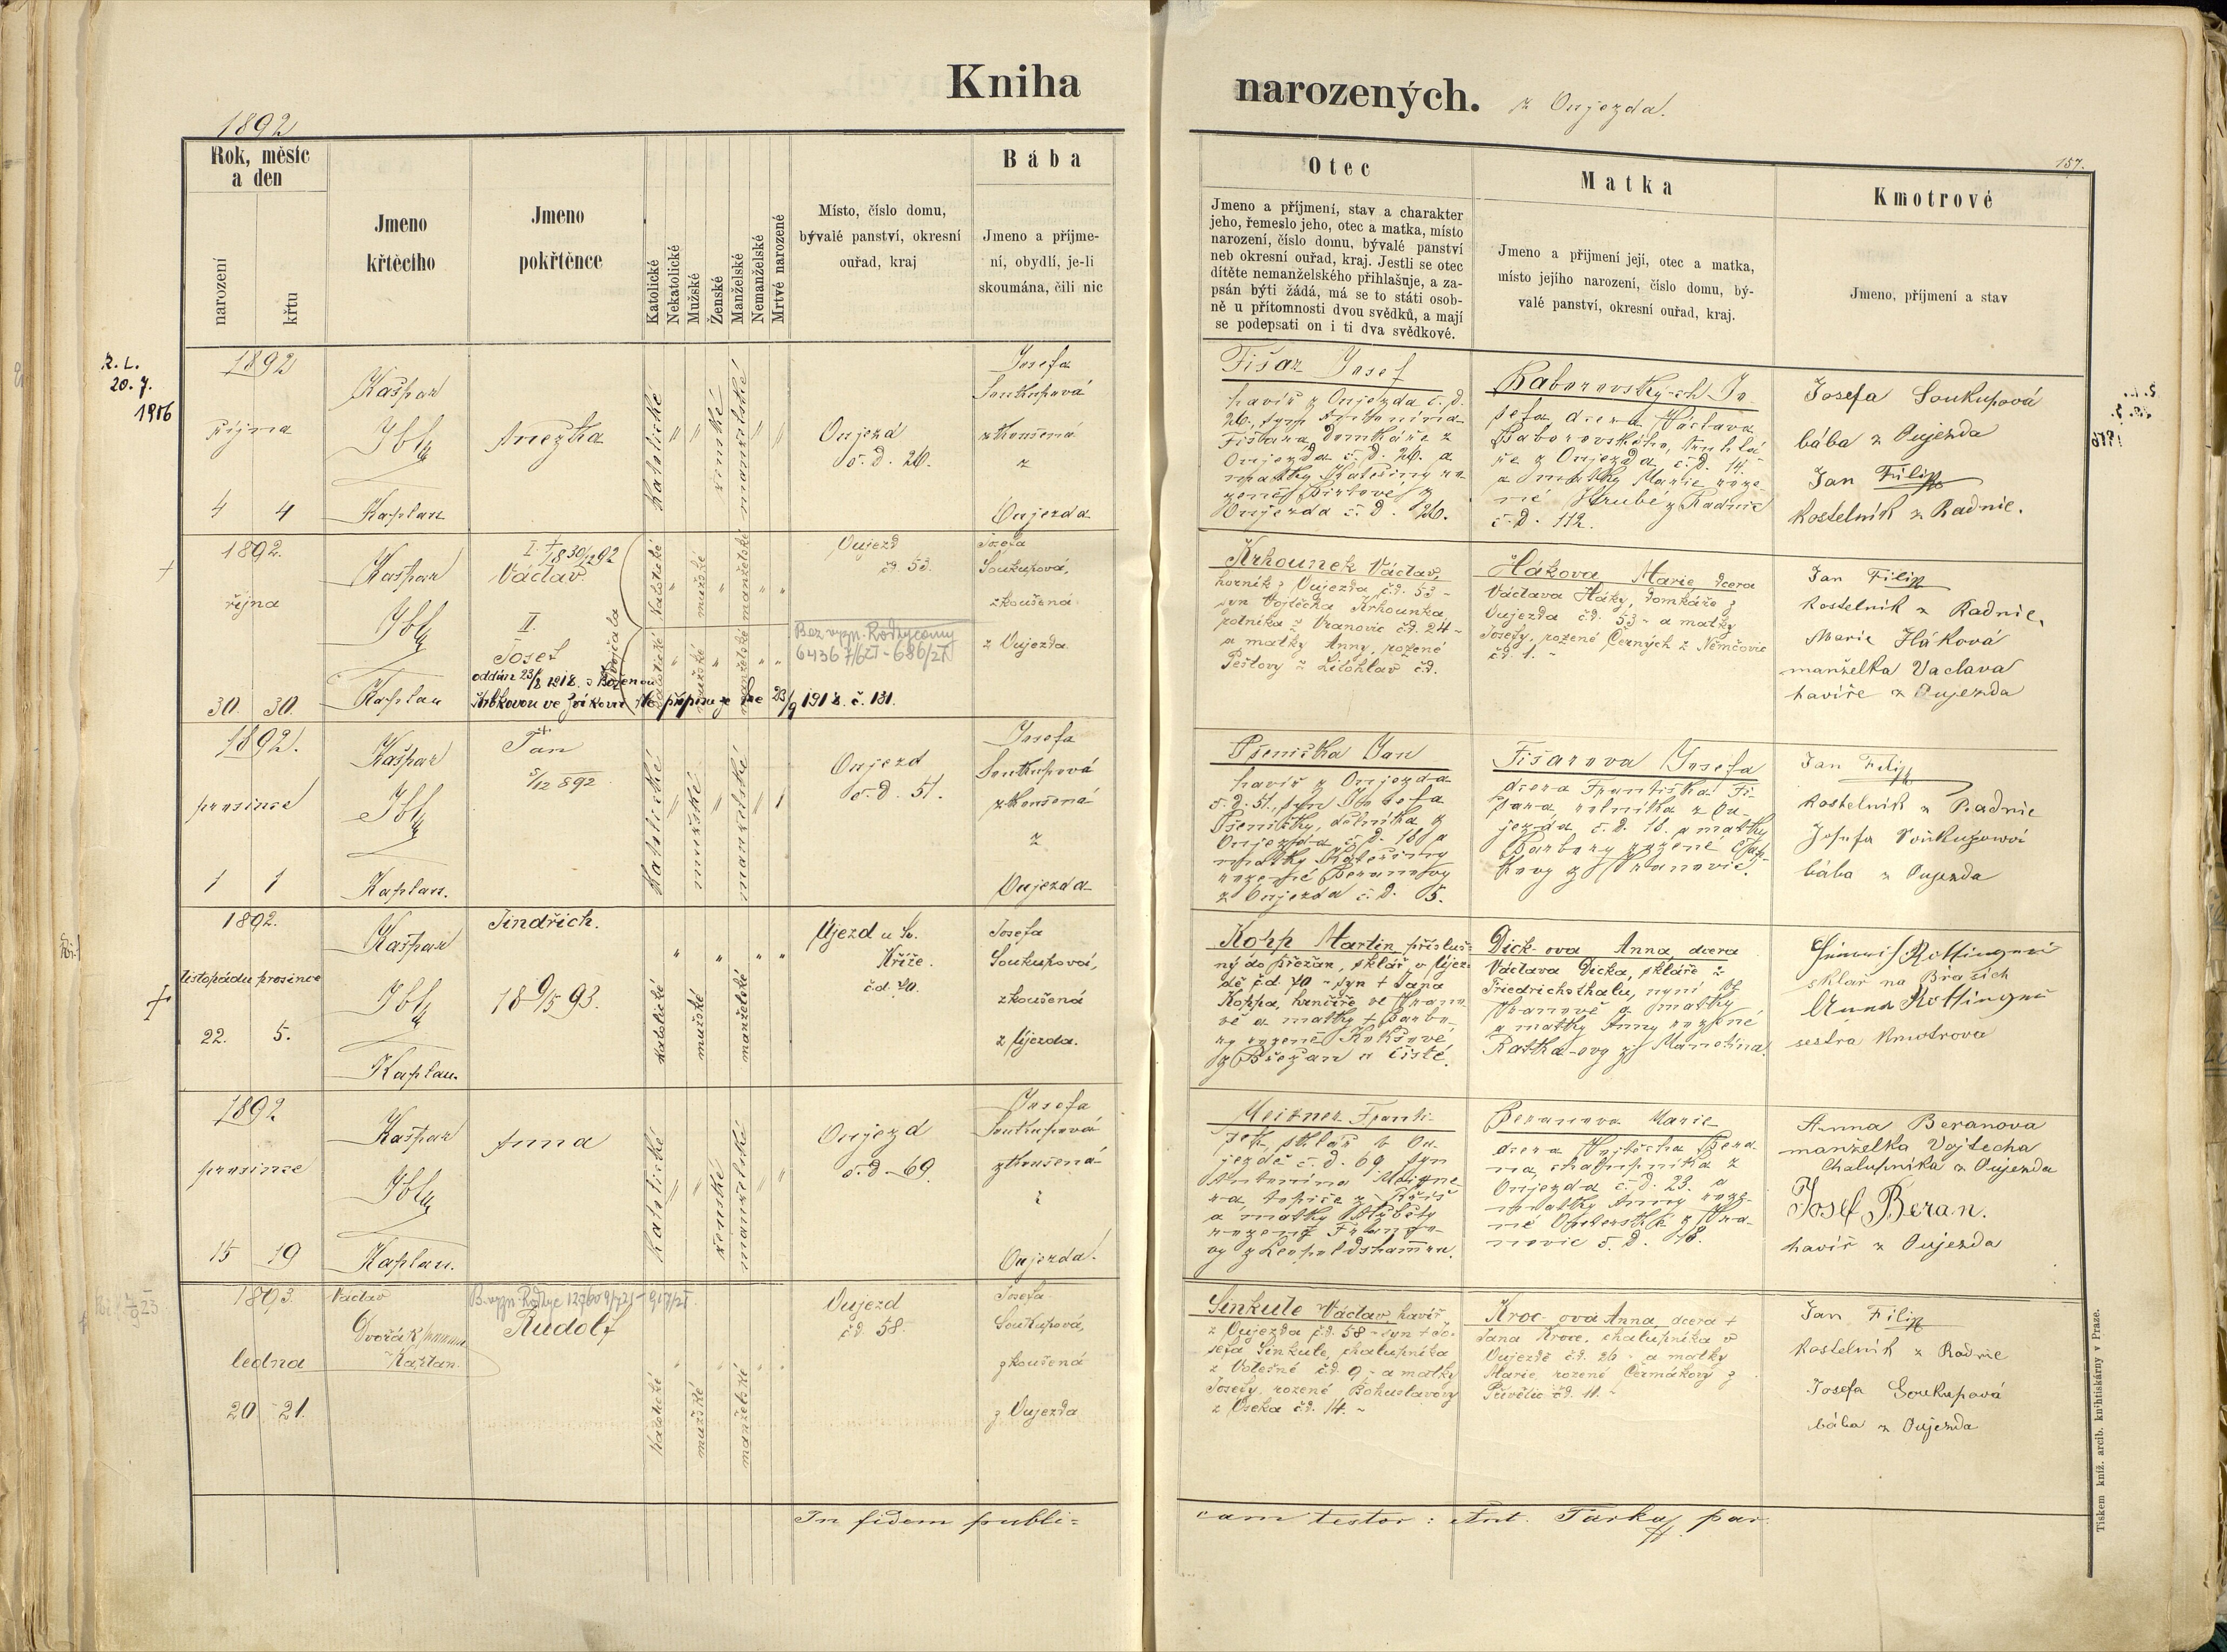 Kniha
narozených. z Oujezda.
1892
157.
Rok, měsíc
a den
narození
křtu
Jmeno
křtěcího
Jmeno
pokřtěnce
Katolické
Nekatolické
Mužské
Ženské
Manželské
Nemanželské
Mrtvé narozené
Místo, číslo domu,
bývalé panství, okresní
ouřad, kraj
Bába
Jmeno a příjme-
ní, obydlí, je-li
skoumána, čili nic
Otec
Jmeno a příjmení, stav a charakter
jeho, řemeslo jeho, otec a matka, místo
narození, číslo domu, bývalé panství
neb okresní ouřad, kraj. Jestli se otec
dítěte nemanželského přihlašuje, a za-
psán býti žádá, má se to státi osob-
ně u přítomnosti dvou svědků, a mají
se podepsati on i ti dva svědkové.
Matka
Jmeno a přijmení její, otec a matka,
místo jejího narození, číslo domu, bý-
valé panství, okresní ouřad, kraj.
Kmotrové
Jmeno, příjmení a stav
20. 7.
1916
1892
října
4 4
Kašpar
Ibl
Kaplan
Anežka
katolické
ženské
manželské
Oujezd
č. d. 26.
Josefa
Soukupová
zkoušená
z
Oujezda
Fišar Josef
havíř z Oujezda č. d.
26., syn Antonína
Fišara, domkáře z
Oujezda č. d. 26. a
matky Kateřiny ro-
zené
Oujezda č. d. 26.
Baborovských Jo-
sefa, dcera Václava
Baborovského, truhlá-
ře z Oujezda č. d. 14.
a matky Marie roze-
né Hrubé z Radnic
č. d. 112.
Josefa Soukupová
bába z Oujezda
Jan Filip
kostelník z Radnic.
1892.
října
30. 30.
Kašpar
Ibl
Kaplan
I. † 18 30/12 92
Václav
II.
Josef
dvojčata
oddán 23/8 1918. s Boženou
připisuje se 23/9 1918. č. 131.
katolické
mužské
manželské
katolické
mužské
manželské
Oujezd
čd. 53.
Josefa
Soukupová,
zkoušená
z Oujezda
Krhounek Václav,
horník z Oujezda, čd. 53 -
syn Vojtěcha Krhounka,
rolníka z Vranovic čd. 24 -
a matky Anny, rozené
Peštovy z Litohlav čd.
Hákova, Marie dcera
Václava Háky, domkáře z
Oujezda čd. 53 - a matky
Josefy, rozené Černých z Němčovic
čd. 1. -
Jan Filip
kostelník z Radnic.
Marie Háková
manželka Vaclava
havíře z Oujezda
1892.
prosince
1 1
Kašpar
Ibl
Kaplan.
†
Jan
5/12 892
katolické
mužské
manželské
Oujezd
č. d. 51.
Josefa
Soukupová
zkoušená
z
Oujezda
Pšenička Jan
havíř z Oujezda
č. d. 51., syn Josefa
Pšeničky, dělníka z
Oujezda č. d. 18 a
matky Kateřiny
rozené Beranovy
z Oujezda č. d. 5.
Fišarova Josefa
dcera Františka Fi-
šara rolníka z Ou-
jezda č. d. 18. a matky
Barbory rozené
z Vranovic.
Jan Filip
kostelník z Radnic
Josefa Soukupová
bába z Oujezda
1892.
listopadu prosince
22. 5.
Kašpar
Ibl
Kaplan.
Jindřich.
18 9/5 93.
katolické
mužské
manželské
Újezd u Sv.
Kříže.
čd. 70.
Josefa
Soukupová,
zkoušená
z Újezda.
Kopp Martin, přísluš-
ný do Břežan, sklář v Újez-
dě čd. 70 - syn † Jana
Koppa, hrnčíře ve Vrano-
vě a matky † Barbo-
ry rozené Kokšové
z Břežan u Čisté.
Dick-ova Anna, dcera
Václava Dicka, skláře z
Friedrichsthalu, nyní ve
Vranově a matky
a matky Anny rozené
Ratka-ovy z Mamotína.
sklář na Břasích
Anna
sestra kmotrova
1892
prosince
15 19
Kašpar
Ibl
Kaplan.
Anna
katolické
ženské
manželské
Oujezd
č. d. 69.
Josefa
Soukupová
zkoušená
z
Oujezda.
Meixner Franti-
šek, sklář v Ou-
jezdě č. d. 69, syn
Antonína Meixne-
ra, topiče z
a matky Alžběty
rozené
z Leopoldshammru.
Beranova Marie
dcera Vojtěcha Bera-
na, chalupníka z
Oujezda č. d. 23. a
matky Anny roze-
né z Vra-
novic č. d. 18.
Anna Beranova
manželka Vojtecha
Chalupníka z Oujezda
Josef Beran.
havíř z Oujezda
1893.
ledna
20 21.
Václav
Dvořák
Kaplan.
Rudolf
katolické
mužské
manželské
Oujezd
čd. 58.
Josefa
Soukupová,
zkoušená
z Oujezda
Šinkule Václav, havíř
z Oujezda čd. 58 - syn † Jo-
sefa Šinkule, chalupníka
z Volešné čd. 9, - a matky
Josefy, rozené Bohuslavovy
z Oseka čd. 14. -
Kroc-ova Anna, dcera †
Jana Kroce, chalupníka v
Oujezdě čd. 26 - a matky
Marie, rozené Čermákovy z
Přívětic čd. 11. -
Jan Filip
kostelník z Radnic
Josefa Soukupová
bába z Oujezda
In fidem publi=
cam testor: Ant. Tarka, par.
Tiskem kníž. arcib. knihtiskárny v Praze.